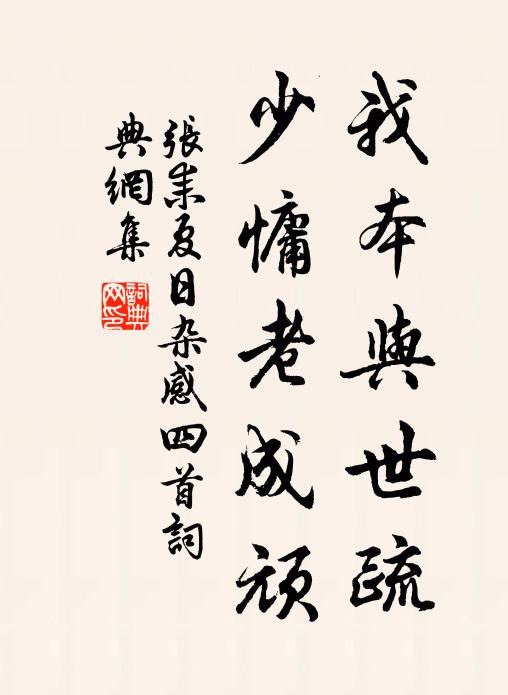 我本與世疏
少慵老成頑
張耒夏日杂感四首詞
典網集
詞典
网印